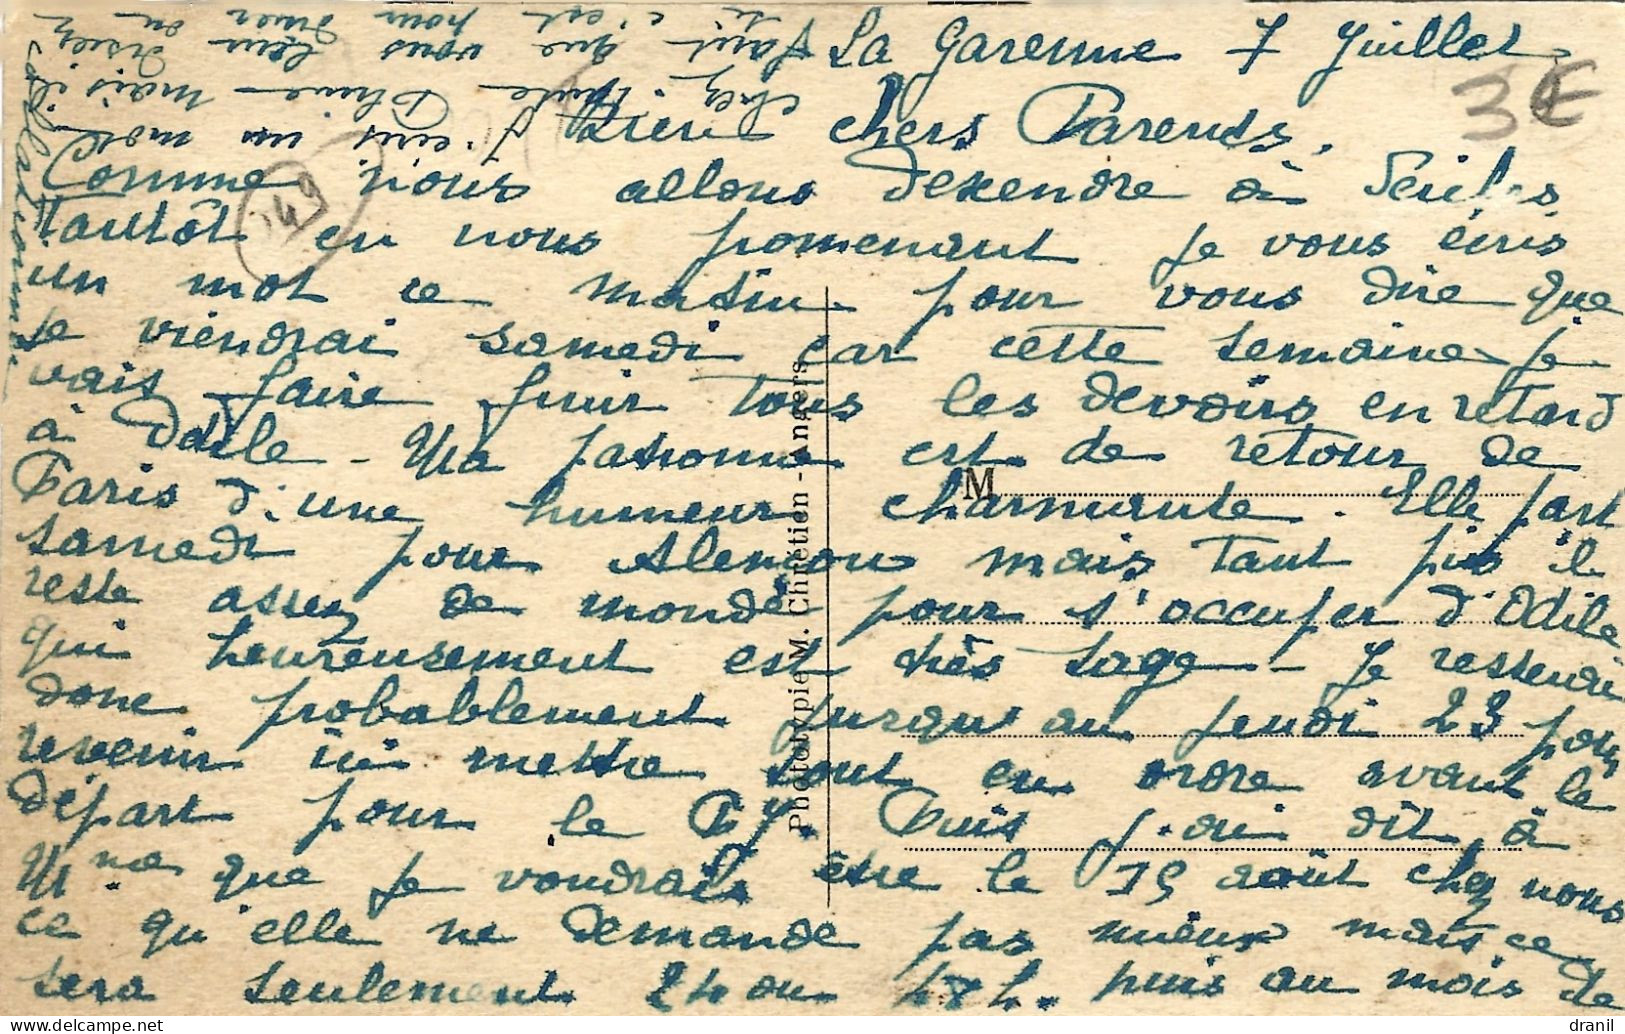 La Garenne 7 Juillet
3€
Bien chers Parents.
149
Comme nous allons descendre à
tantôt en nous promenant je vous écris
un mot ce matin pour vous dire que
je viendrai samedi car cette semaine je
vais faire finir tous les devoirs en retard
à Odile - Ma patronne est de retour de
Paris d'une humeur charmante. Elle part
samedi pour Alençon mais tant pis il
reste assez de monde pour s'occuper d'Odile
qui heureusement est très sage - Je
donc probablement jusqu'au jeudi 23 pour
revenir ici mettre tout en ordre avant le
départ pour le P.J. Puis j'ai dit à
Mme que je voudrais être le 15 août chez nous
ce qu'elle ne demande pas mieux mais ce
sera seulement 24 ou 48 h. puis au mois de
J'écris un mot
chez mais il
faut que vous leur disiez
c'est pour
M
Phototypie M. Chrétien - Angers
dranil